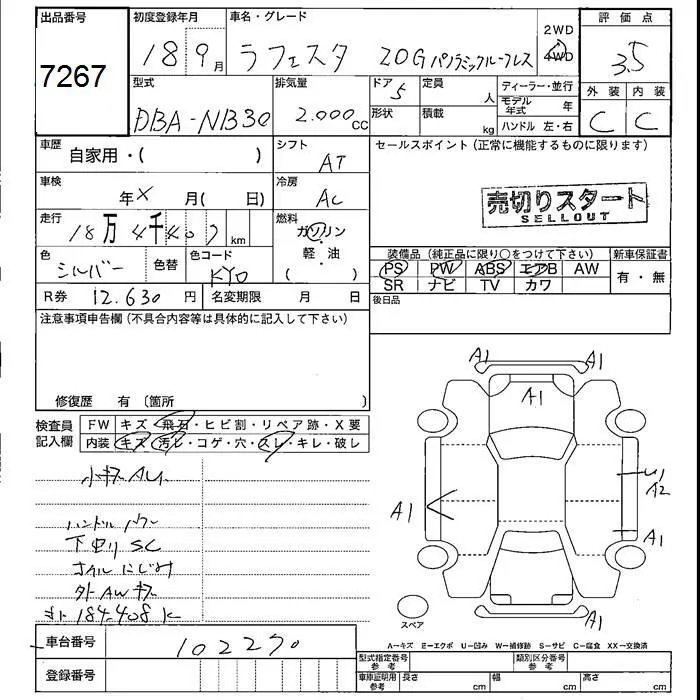 出品番号 初度登録年月 車名・グレード 2WD 評価点
7267 18 9月 ラフェスタ 20G パノラミックルーフレス 4WD 3.5
型式 排気量 ドア 5 定員 人 ディーラー・並行 外装 内装
DBA-NB30 2.000 CC 形状 積載 kg モデル年式 年 C C
ハンドル 左・右
車歴 自家用・( ) シフト AT セールスポイント(正常に機能するものに限ります)
車検 年 X 月( 日) 冷房 AC 売切りスタート
SELLOUT
走行 18万4千407km 燃料 ガソリン
軽・油
( )
色 シルバー 色替 色コード KY0 装備品(純正品に限り○をつけて下さい) 新車保証書
PS PW ABS エアB AW 有・無
SR ナビ TV カワ
R券 12.630円 名変期限 月 日 後日品
注意事項申告欄(不具合内容等は具体的に記入して下さい)
修復歴 有(箇所 )
検査員 FW キズ・飛石・ヒビ割・リペア跡・X要
記入欄 内装 キズ・汚レ・コゲ・穴・スレ・キレ・破レ
A1 A1
A1
小キズ AU
U1
A2
A1 A1
ハンドル
下回り SC
オイルにじみ
外 AW キズ
184.408K
A1
スペア
A―キズ E―エクボ U―凹み W―補修跡 S―サビ C―腐食 XX―交換済
車台番号 102270
型式指定番号 参考 類別区分番号 参考
登録番号 車庫証明用 参考 長さ cm 幅 cm 高さ cm